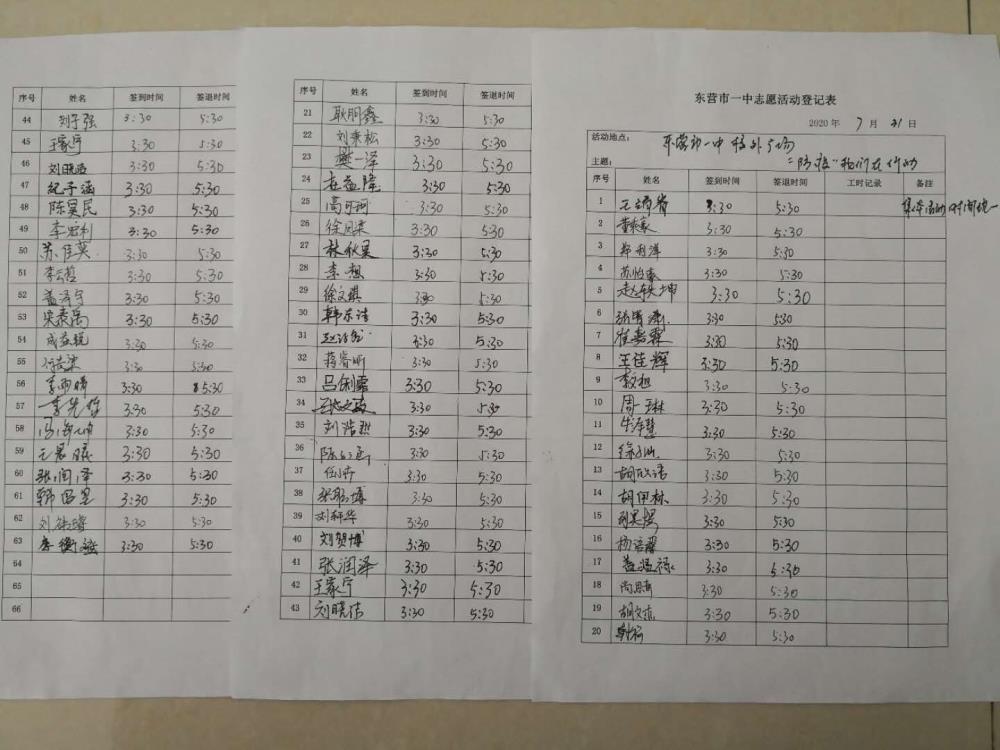 序号 姓名 签到时间 签退时间
44 刘子强 3:30 5:30
45 王家宁 3:30 5:30
46 刘晓 3:30 5:30
47 纪子涵 3:30 5:30
48 陈昊民 3:30 5:30
49 李宏利 3:30 5:30
50 苏佳莫 3:30 5:30
51 李 3:30 5:30
52 盖泽宁 3:30 5:30
53 3:30 5:30
54 成 3:30 5:30
55 3:30 5:30
56 李雨晴 3:30 5:30
57 李先 3:30 5:30
58 冯 3:30 5:30
59 3:30 5:30
60 张润泽 3:30 5:30
61 韩 3:30 5:30
62 刘 3:30 5:30
63 李衡 3:30 5:30
64
65
66
序号 姓名 签到时间 签退时间
21 耿明鑫 3:30 5:30
22 刘秉松 3:30 5:30
23 樊一泽 3:30 5:30
24 3:30 5:30
25 高可珂 3:30 5:30
26 徐 3:30 5:30
27 林秋昊 3:30 5:30
28 李想 3:30 5:30
29 徐文琪 3:30 5:30
30 韩东洁 3:30 5:30
31 赵 3:30 5:30
32 蒋睿明 3:30 5:30
33 吕俐霖 3:30 5:30
34 3:30 5:30
35 刘浩然 3:30 5:30
36 陈 3:30 5:30
37 3:30 5:30
38 张 博 3:30 5:30
39 刘轩华 3:30 5:30
40 刘贺博 3:30 5:30
41 张润泽 3:30 5:30
42 王家宁 3:30 5:30
43 刘晓倩 3:30 5:30
东营市一中志愿活动登记表
2020 年 7 月 31 日
活动地点: 东营市一中 校外广场
主题: "防疫"我们在行动
序号 姓名 签到时间 签退时间 工时记录 备注
1 王 3:30 5:30 集体活动时间统一
2 3:30 5:30
3 郑利洋 3:30 5:30
4 苏怡 3:30 5:30
5 赵轶坤 3:30 5:30
6 3:30 5:30
7 崔嘉霖 3:30 5:30
8 王佳辉 3:30 5:30
9 3:30 5:30
10 周一琳 3:30 5:30
11 牛泽慧 3:30 5:30
12 徐 3:30 5:30
13 胡欣 3:30 5:30
14 胡伊林 3:30 5:30
15 3:30 5:30
16 杨 3:30 5:30
17 盖温禄 3:30 5:30
18 尚 3:30 5:30
19 胡文 3:30 5:30
20 3:30 5:30